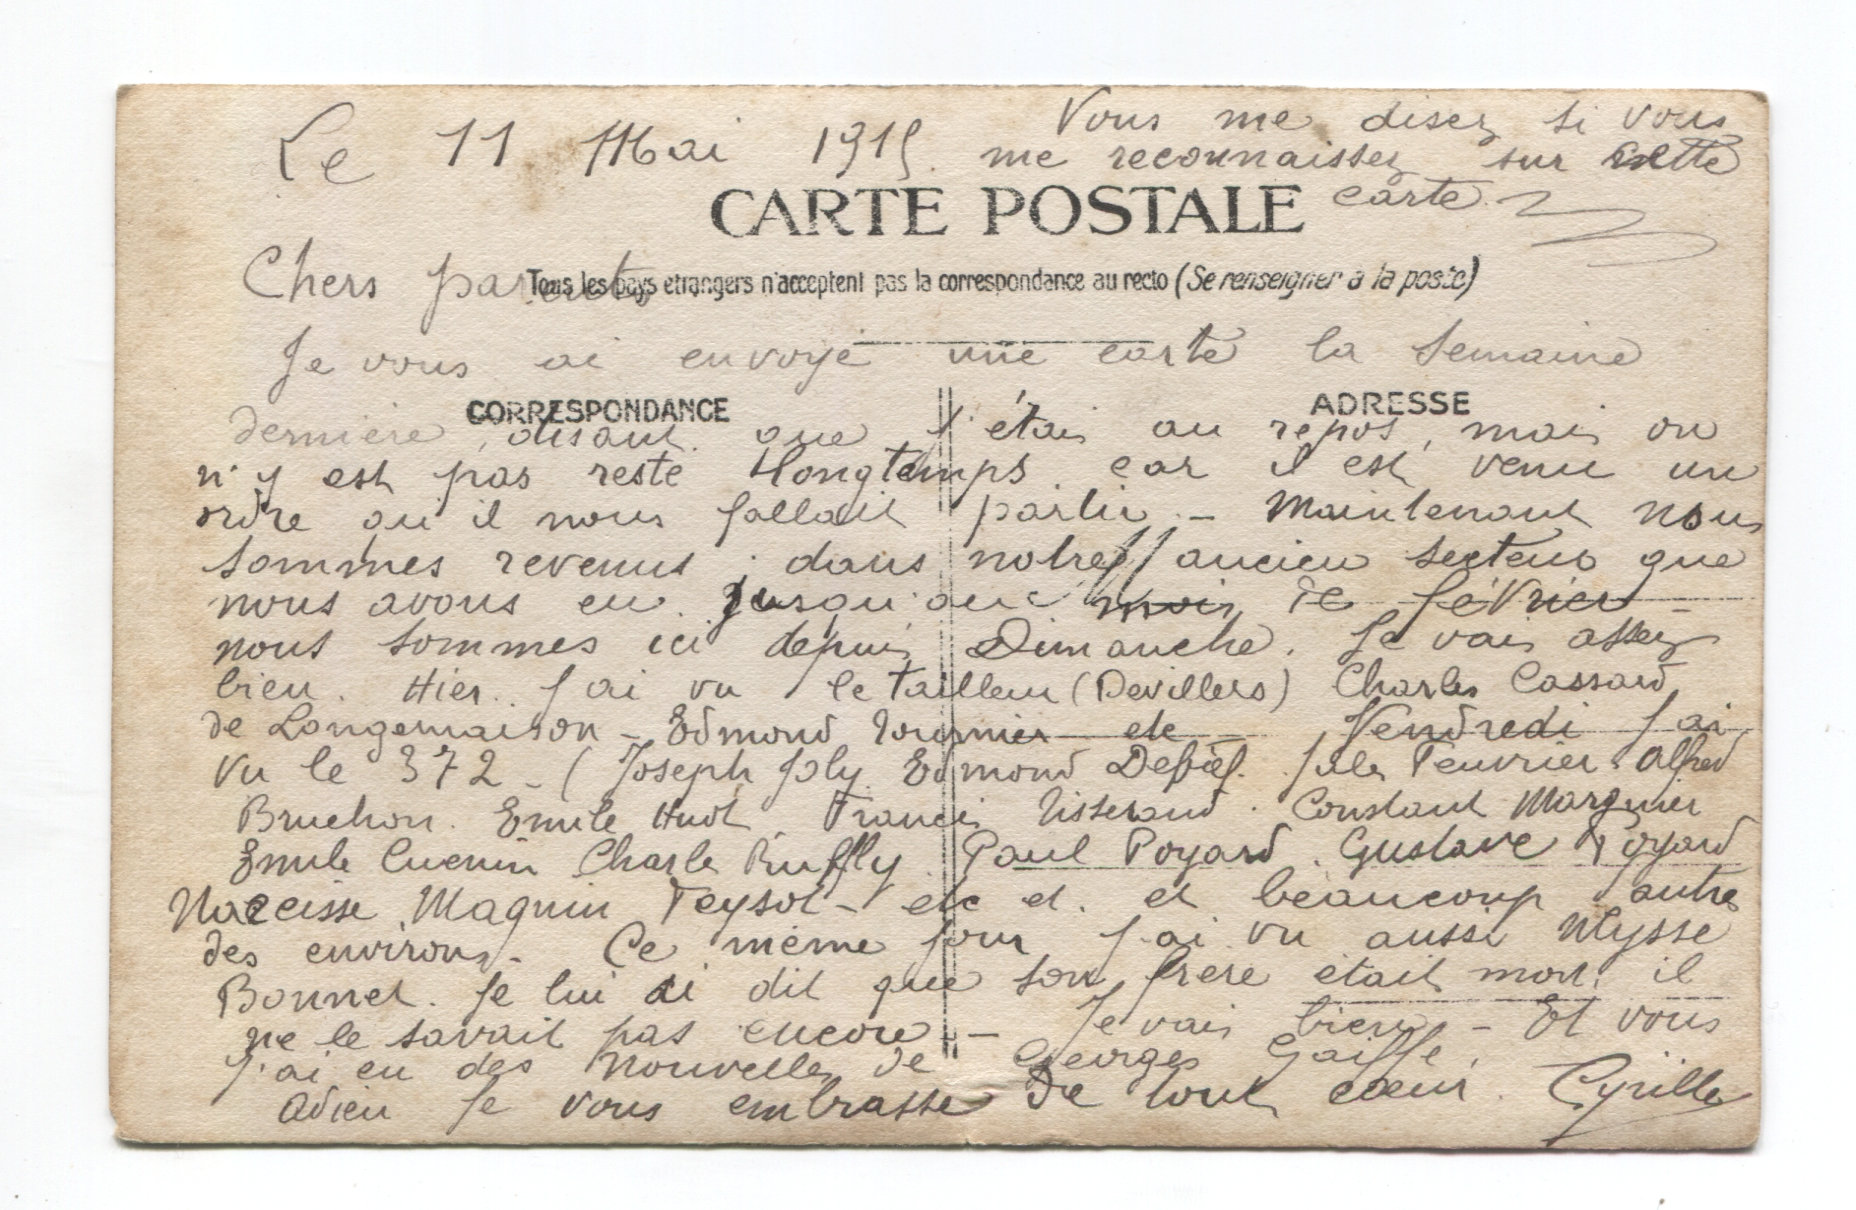 Le 11 Mai 1915.
Vous me disez si vous
me reconnaissez sur cette
carte.
CARTE POSTALE
Tous les pays etrangers n'acceptent pas la correspondance au recto (Se renseigner a la poste)
Chers parents
Je vous ai envoyé une carte la semaine
CORRESPONDANCE
ADRESSE
dernière, disant que j'étais au repos, mais on
n'y est pas resté longtemps car il est venu un
ordre qu'il nous fallait partir - Maintenant nous
sommes revenus dans notre ancien secteur que
nous avons eu jusqu'au mois de février -
nous sommes ici depuis Dimanche. Je vais assez
bien. Hier j'ai vu le tailleur (Devillers) Charles Cassard
de Longemaison - Edmond Tournier etc - Vendredi j'ai
vu le 372 - (Joseph Joly Edmond Jules Feuvrier Alfred
Bruchon. Emile Huot Francis Tisserand. Constant Marguier
Emile Cuenin Charle Ruffly Paul Poyard. Gustave Poyard
Narcisse Magnin Feysot - etc et. et beaucoup autres
des environs - Ce même jour j'ai vu aussi Ulysse
Bonnet. Je lui ai dit que son frère était mort. il
ne le savait pas encore - Je vais bien - Et vous
J'ai eu des nouvelles de Georges Gaiffe.
Adieu Je vous embrasse de tout cœur. Cyrille